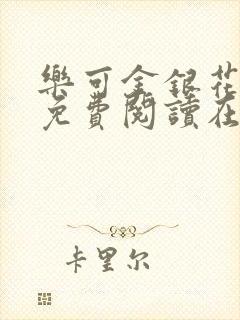 樂可金銀花
免費閱讀在
卡里尔